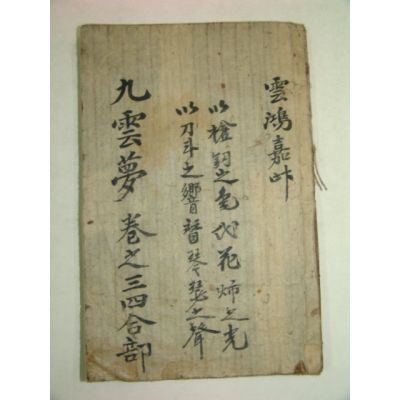 雲鴻嘉
以槍釰之色代花之光
以刀斗之響替琴瑟之聲
九雲夢 卷之三四合部